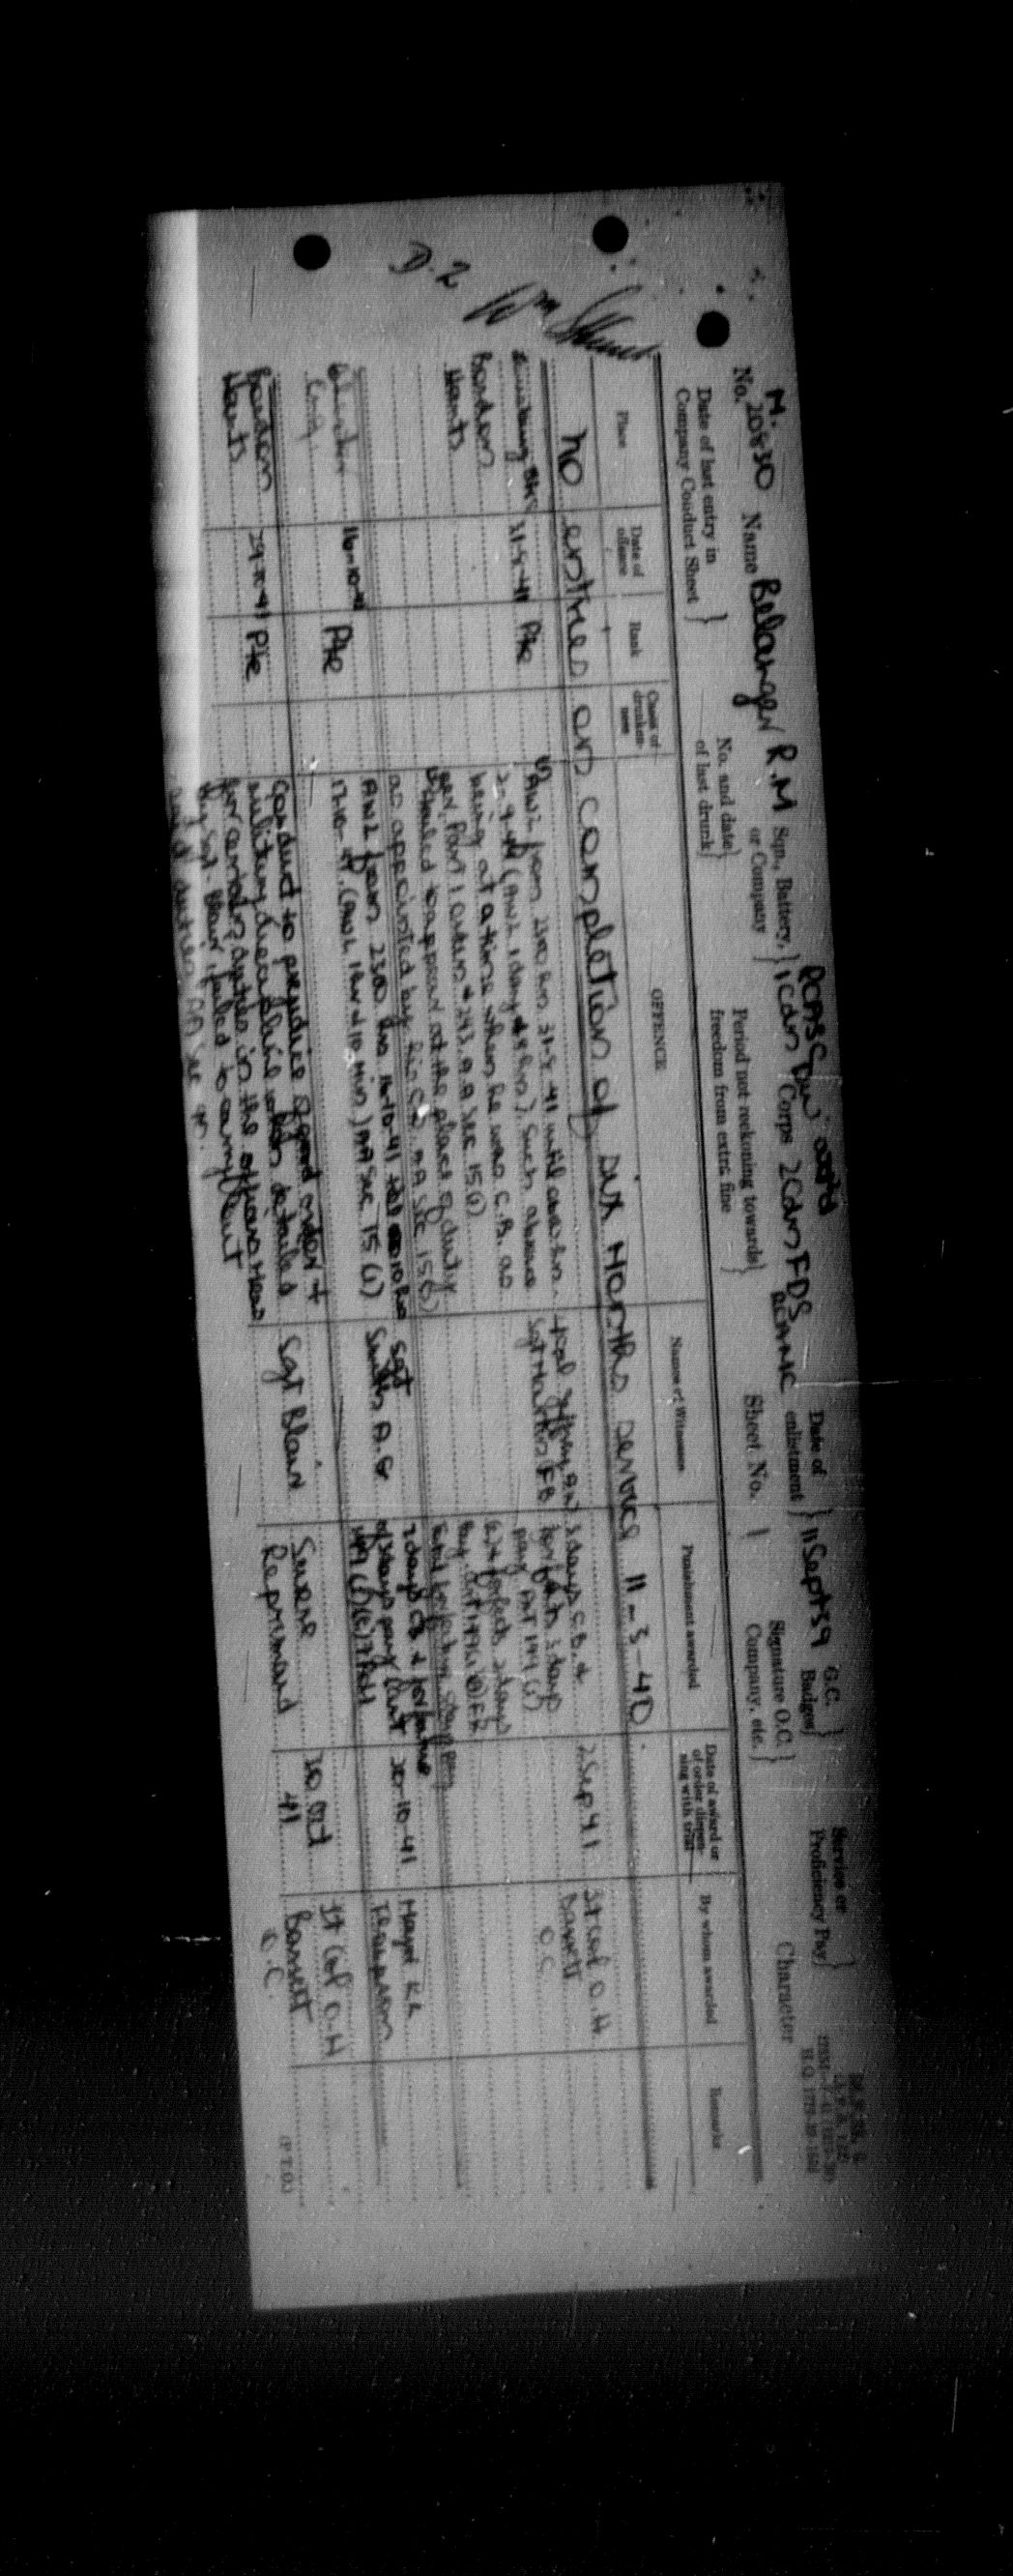 D-2
M.F.M. 6
H.Q. 1772-39-1631
RCASC Div att'd RCAMC
M.
No. 20830 Name Belanger R.M Sqn., Battery, or Company } 1 Cdn Corps 2 Cdn FDS Date of enlistment } 11 Sept 39 G.C. Badges } Service or Proficiency Pay }
Date of last entry in Company Conduct Sheet } No. and date of last drunk } Period not reckoning towards freedom from extra fine } Sheet No. 1 Signature O.C. Company, etc. } Character
Place Date of offence Rank Cases of drunkenness OFFENCE Names of Witnesses Punishment awarded Date of award or of order dispensing with trial By whom awarded Remarks
No entries on completion of six Months service 11-3-40.
31-8-41 Pte
Bordon
Hants
AWL from 2300 hrs 31-8-41 until
2-9-41 (AWL 1 day hrs). Such absence
being at a time when he was C.B. as
per Part 1 order # 243. A.A Sec 15(1)
Failed to appear at the place of duty
as appointed by his C.O. AA Sec 15(2)
Sgt FB
3 days C.B. &
forfeits 3 days
pay
forfeits 2 days
pay
2 Sep 41
Lt Col O.H
Barrett
O.C.
16-10-41 Pte
AWL from 2300 hrs 16-10-41 till 0010 hrs
17-10-41. (AWL 1 hr & 10 min) AA Sec 15 (1)
Sgt
Smith A.G
2 days CB & forfeiture
of days pay
20-10-41
Major
Thompson
Bordon
Hants
29-10-41 Pte
Conduct to prejudice of good order &
military discipline when detailed
for certain duties in the officers Mess
by Sgt. Blair failed to carry out
said duties AA Sec 40.
Sgt Blair
Severe
Reprimand
30 Oct
41
Lt Col O.H
Barrett
O.C.
(P.T.O.)